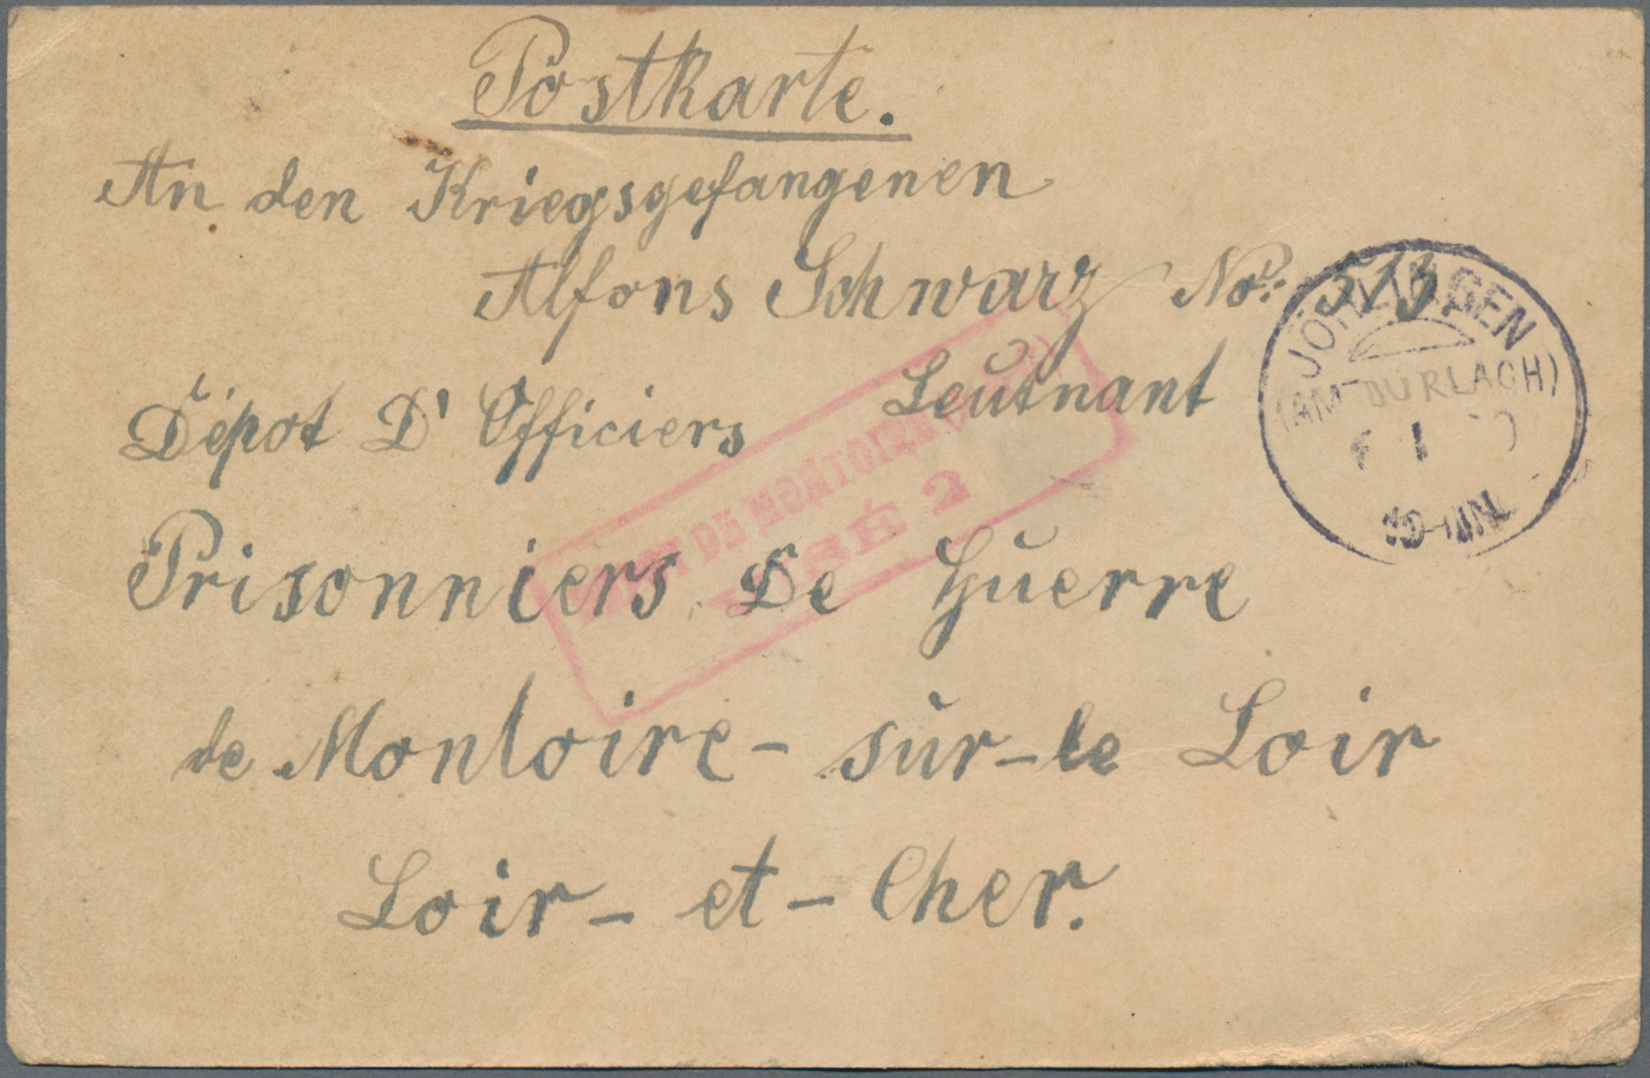 Postkarte.
An den Kriegsgefangenen
Alfons Schwarz No: 513
Leutnant
Dépot D' Officiers
Prisonniers De Guerre
de Montoire - sur - le Loir
Loir - et - Cher.
JÖHLINGEN
(AMT DURLACH)
DE MONTOIRE
2